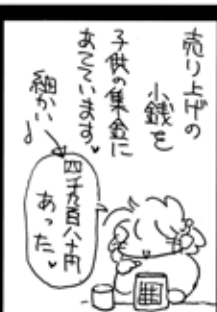 売り上げの
小銭を
子供の集金に
あてています。
細かい
四千九百八十円
あった